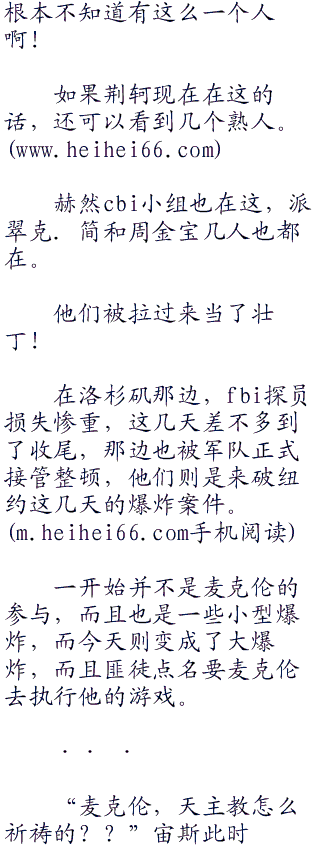 根本不知道有这么一个人
啊！
如果荆轲现在在这的
话，还可以看到几个熟人。
(www.heihei66.com)
赫然cbi小组也在这，派
翠克．简和周金宝几人也都
在。
他们被拉过来当了壮
丁！
在洛杉矶那边，fbi探员
损失惨重，这几天差不多到
了收尾，那边也被军队正式
接管整顿，他们则是来破纽
约这几天的爆炸案件。
(m.heihei66.com手机阅读)
一开始并不是麦克伦的
参与，而且也是一些小型爆
炸，而今天则变成了大爆
炸，而且匪徒点名要麦克伦
去执行他的游戏。
．．．
“麦克伦，天主教怎么
祈祷的？？”宙斯此时